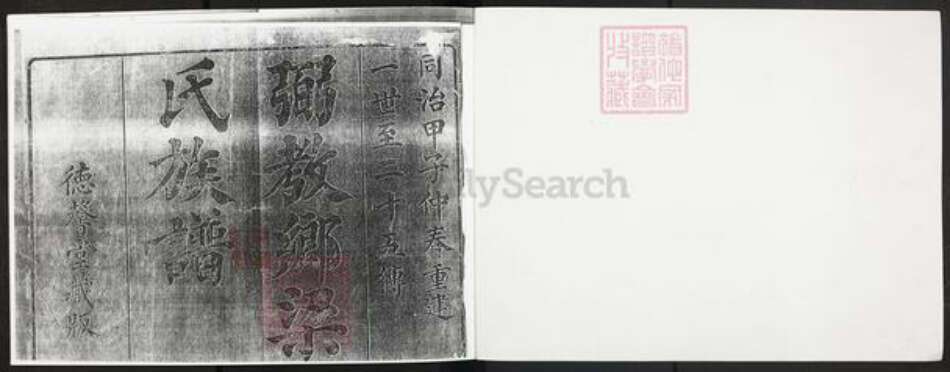 同治甲子仲春重建
一世至二十五傳
弼教鄉梁
氏族譜
德馨堂藏版
lySearch